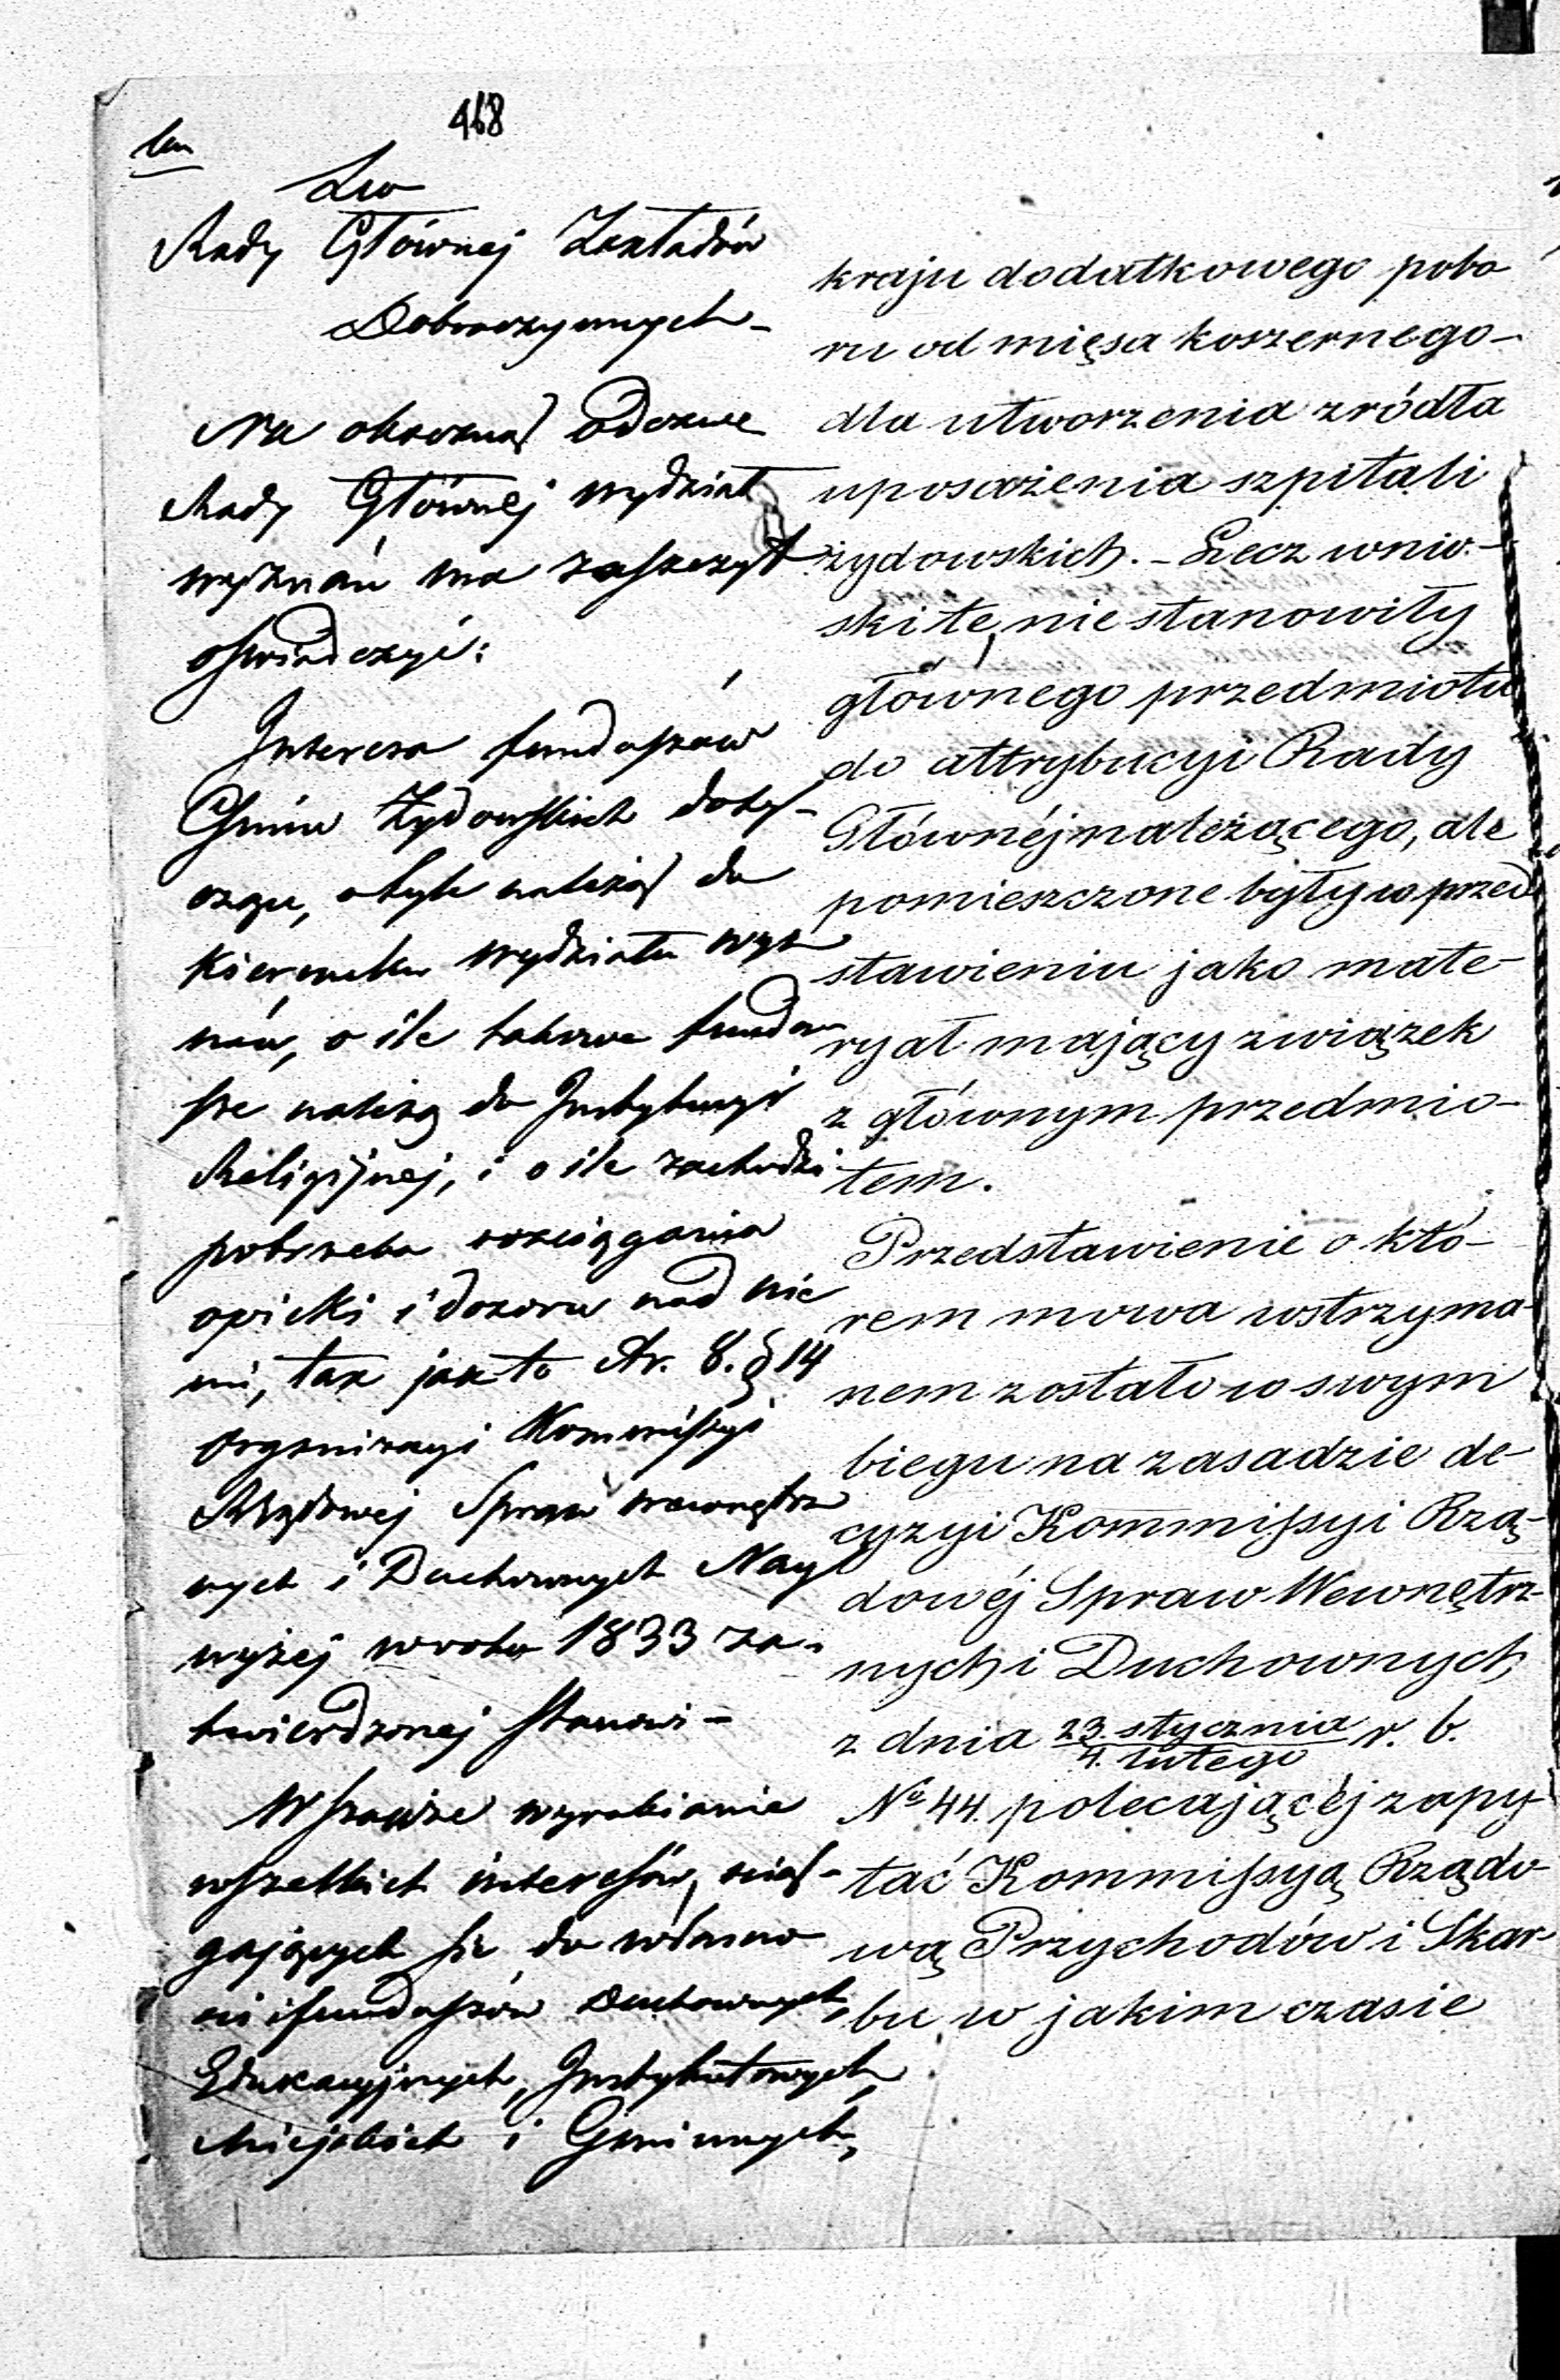 468
Do
Rady Głównej Zakładów
Dobroczynnych -
Na okazaną Odezwę
Rady Głównej wydział
wyznań ma zaszczyt
oświadczyć:
Interesa funduszów
Gmin Żydowskich doty-
czące, o tyle należą do
Kierunku Wydziału wyz
nań, o ile takowe fundu
sze należą do Instytucyi
Religijnej, i o ile zachodzi
potrzeba rozciągania
opieki i dozoru nad nie
mi, tak jak to Ar. 8. § 14
organizacyi Kommissyi
Rządowej Spraw wewnętrz
nych i Duchownych Nay
wyżej w roku 1833 za-
twierdzonej stanowi -
Wszakże wyrabianie
wszelkich interesów, ścią-
gających się do własno
ści i funduszów Duchownych,
Edukacyjnych, Instytutowych,
Miejskich i Gminnych,
kraju dodatkowego pobo
ru od mięsa koszernego -
dla utworzenia zródła
uposażenia szpitali
żydowskich. - Lecz wnio-
ski te, nie stanowiły
głównego przedmiotu
do attrybucyi Rady
Głównéj należącego, ale
pomieszczone były w przed
stawieniu jako mate-
ryał mający związek
z głównym przedmio-
tem.
Przedstawienie o któ-
rem mowa wstrzyma-
nem zostało w swym
biegu na zasadzie de-
cyzyi Kommissyi Rzą-
dowéj Spraw Wewnętrz-
nych i Duchownych
z dnia 23. stycznia / 4. lutego r. b.
No 44. polecającéj zapy-
tać Kommissyą Rządo-
wą Przychodów i Skar-
bu w jakim czasie